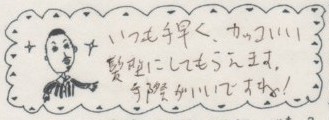 いつも手早く、カッコいい
髪型にしてもらえます。
手際がいいですね!